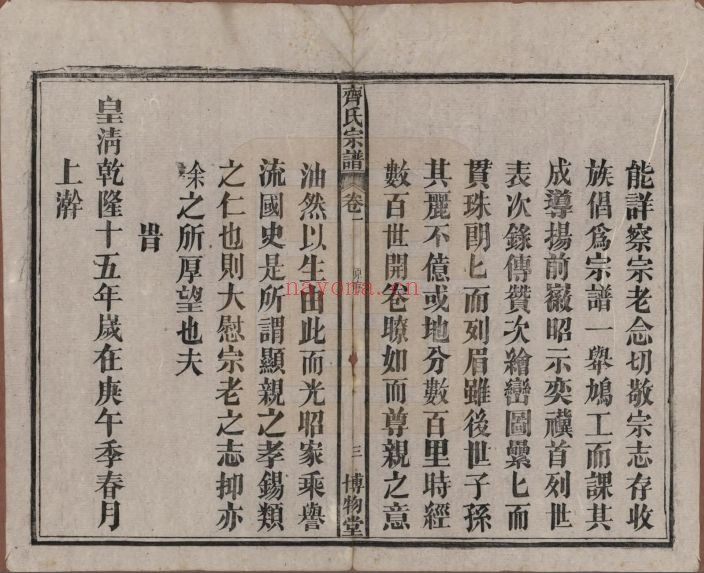 能詳察宗老念切敬宗志存收
族倡爲宗譜一舉鳩工而課其
成導揚前徽昭示奕禩首列世
表次錄傳贊次繪巒圖纍匕而
貫珠朗匕而列眉雖後世子孫
其麗不億或地分數百里時經
數百世開卷瞭如而尊親之意
齊氏宗譜
卷一
三
博物堂
油然以生由此而光昭家乘譽
流國史是所謂顯親之孝錫類
之仁也則大慰宗老之志抑亦
余之所厚望也夫
旹
皇清乾隆十五年歲在庚午季春月
上澣
nayona.cn